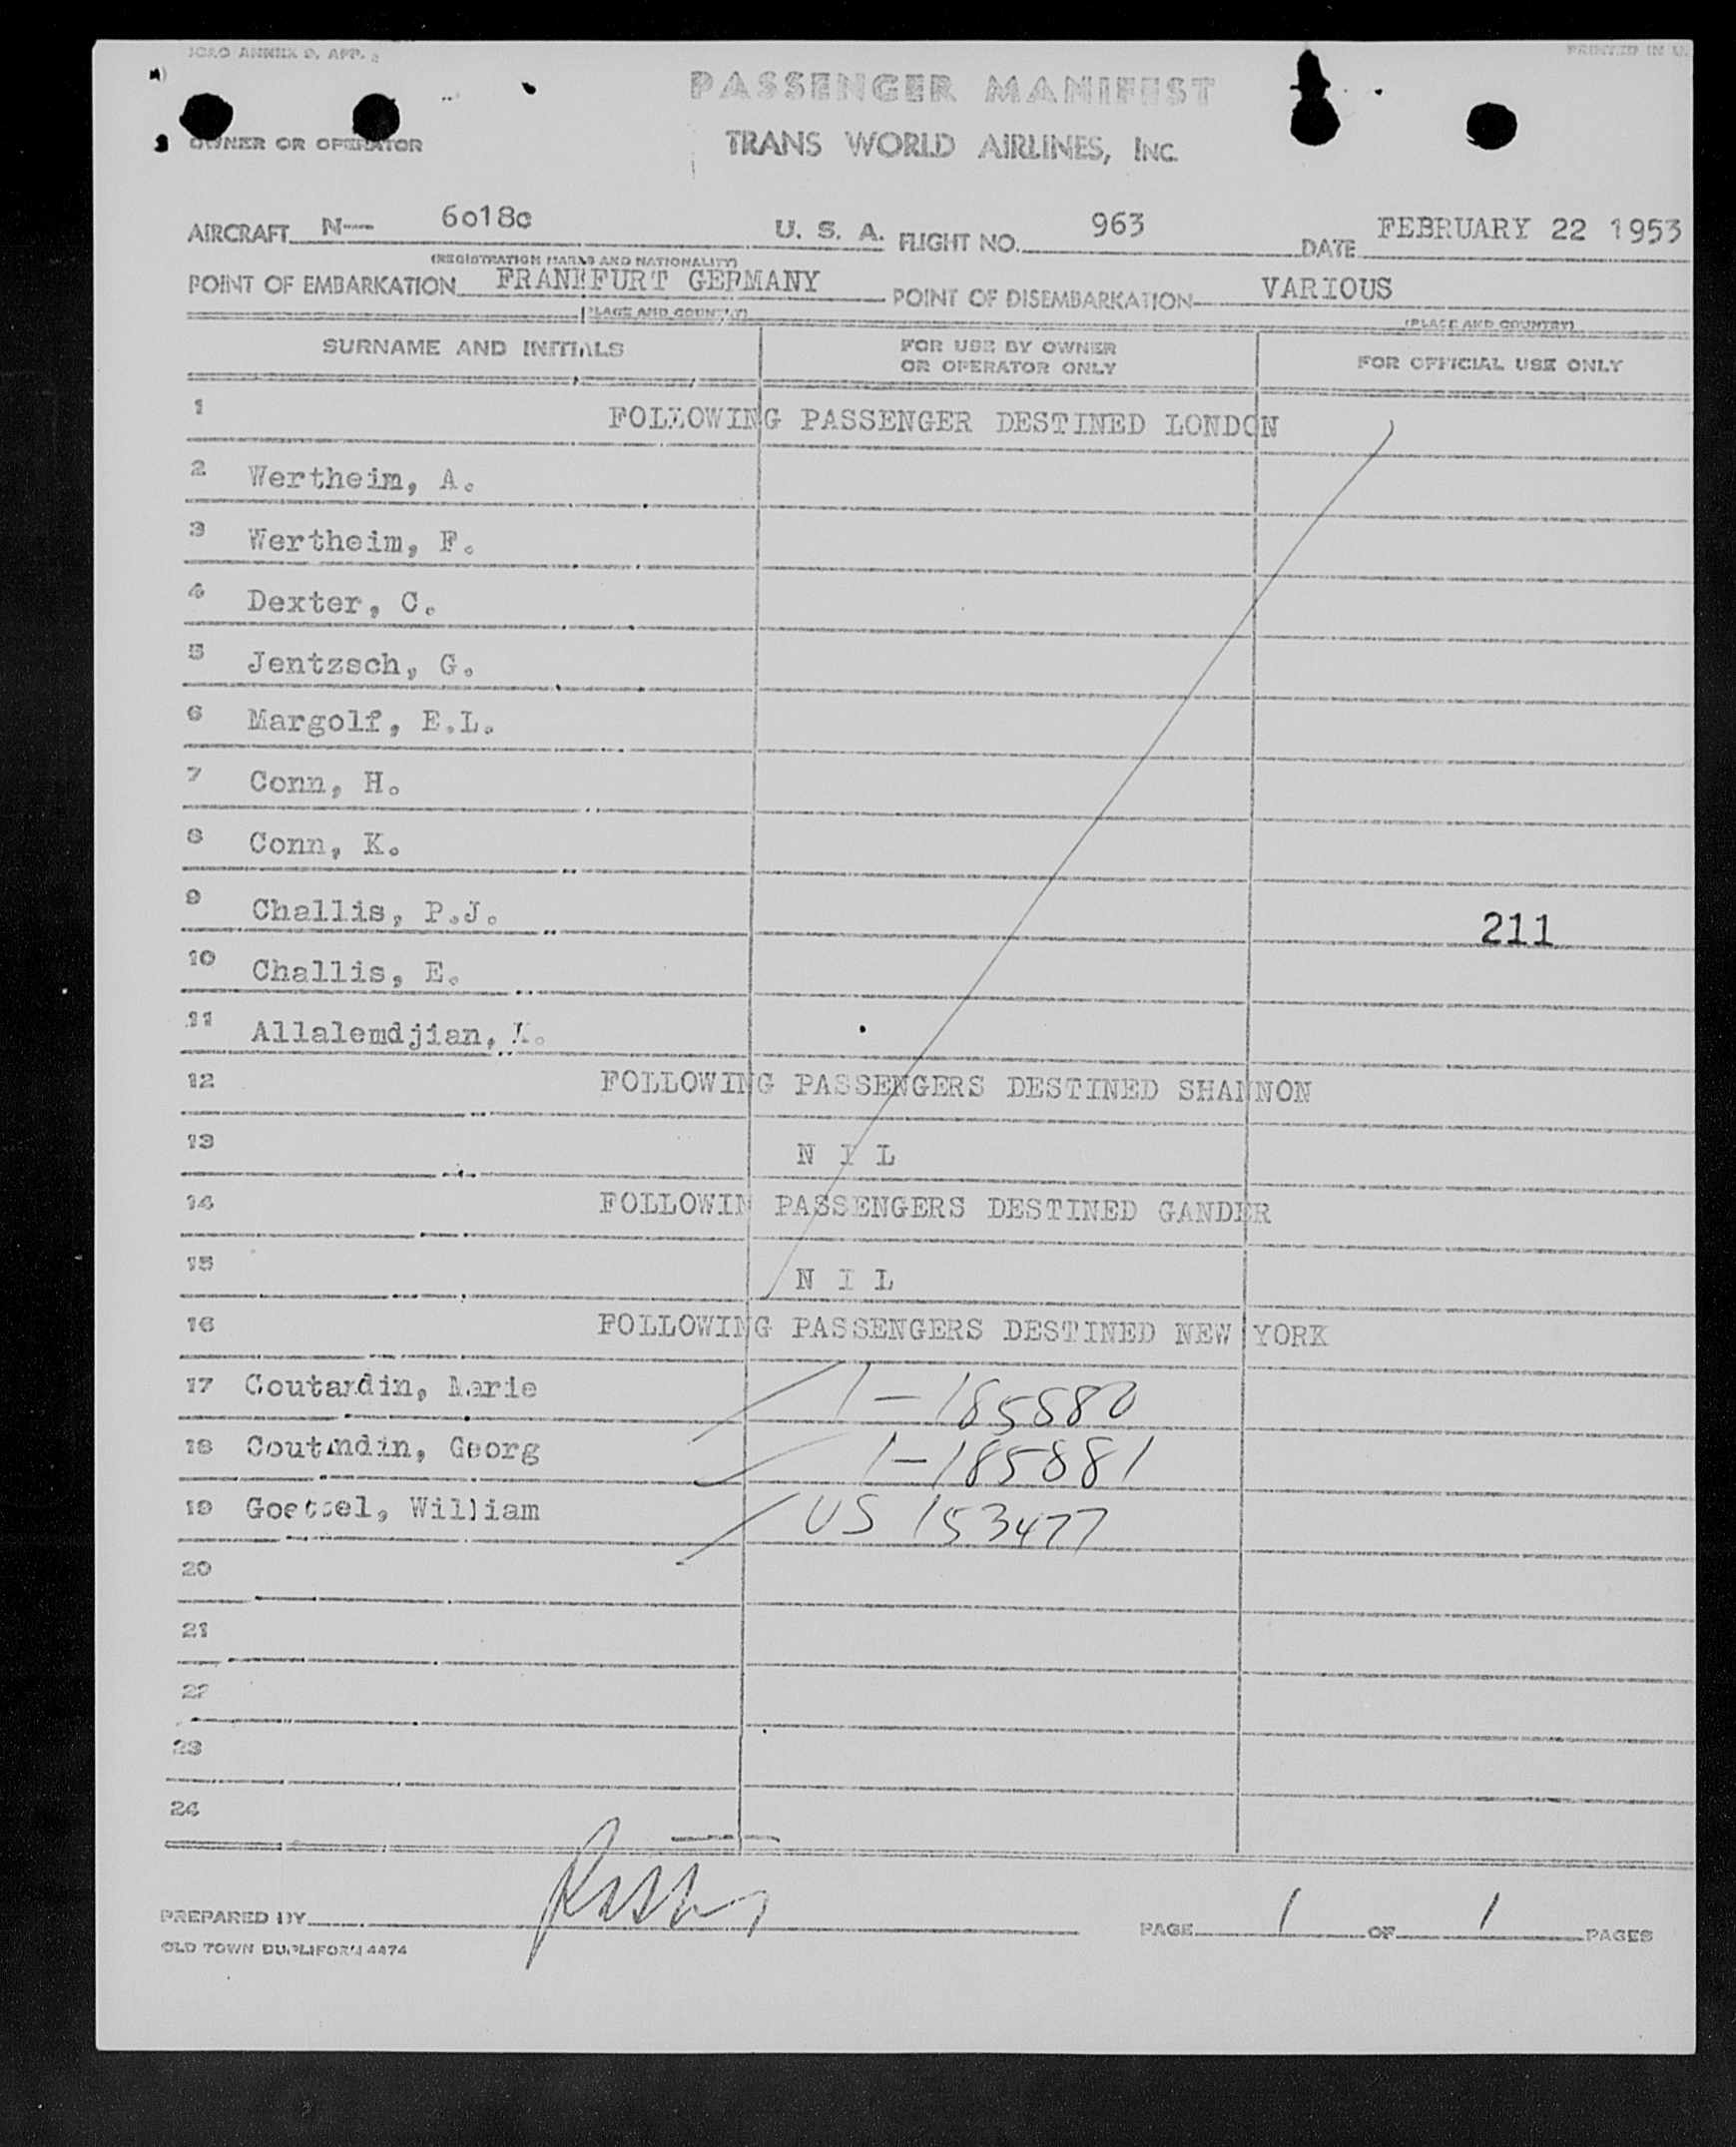 ICAO ANNEX 9, APP. 2
PRINTED IN U.
PASSENGER MANIFEST
OWNER OR OPERATOR
TRANS WORLD AIRLINES, INC.
AIRCRAFT N-- 6018c U. S. A. FLIGHT NO. 963 DATE FEBRUARY 22 1953
(REGISTRATION MARKS AND NATIONALITY)
POINT OF EMBARKATION FRANKFURT GERMANY POINT OF DISEMBARKATION VARIOUS
(PLACE AND COUNTRY) (PLACE AND COUNTRY)
SURNAME AND INITIALS FOR USE BY OWNER OR OPERATOR ONLY FOR OFFICIAL USE ONLY
1 FOLLOWING PASSENGER DESTINED LONDON
2 Wertheim, A.
3 Wertheim, F.
4 Dexter, C.
5 Jentzsch, G.
6 Margolf, E.L.
7 Conn, H.
8 Conn, K.
9 Challis, P.J. 211
10 Challis, E.
11 Allalemdjian,
12 FOLLOWING PASSENGERS DESTINED SHANNON
13 N I L
14 FOLLOWIN PASSENGERS DESTINED GANDER
15 N I L
16 FOLLOWING PASSENGERS DESTINED NEW YORK
17 Coutandin, Marie 1-185880
18 Coutandin, Georg 1-185881
19 William US 153477
20
21
22
23
24
PREPARED BY PAGE 1 OF 1 PAGES
OLD TOWN DUPLIFORM 4474